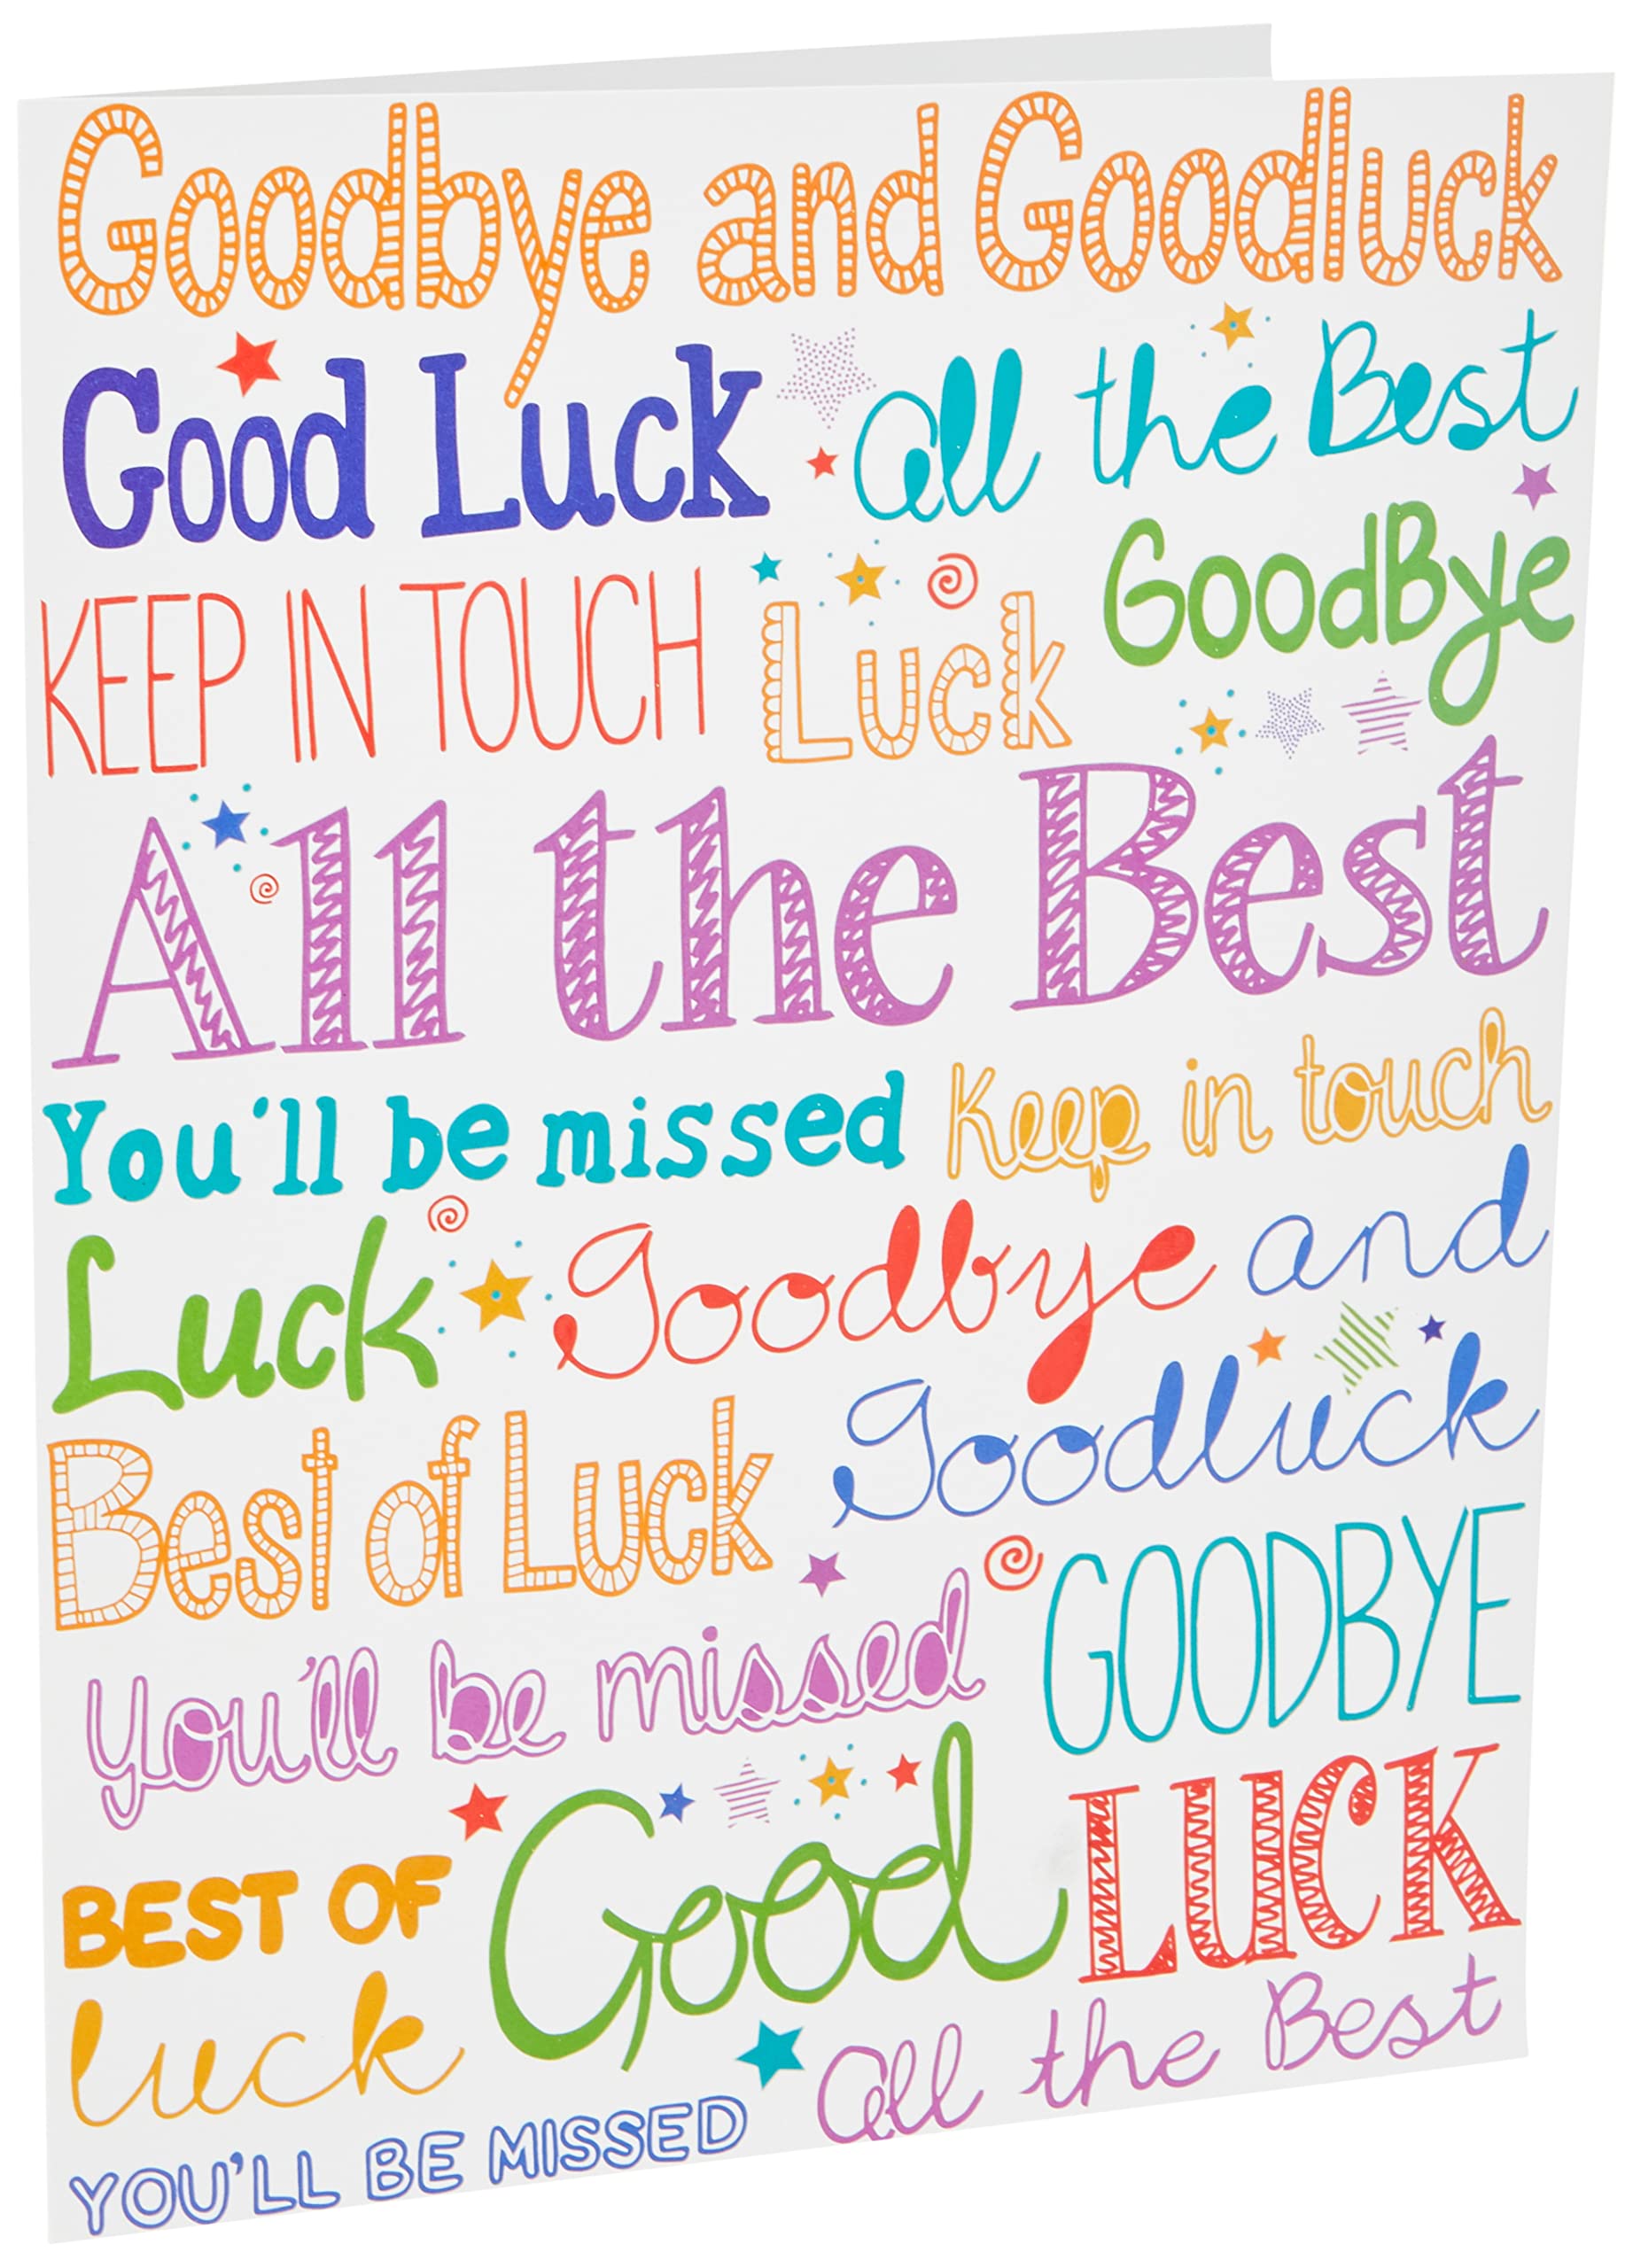 Goodbye and Goodluck
Good Luck all the Best
KEEP IN TOUCH Luck GoodBye
All the Best
You'll be missed Keep in touch
Luck Goodbye and
Best of Luck Goodluck
you'll be missed GOODBYE
BEST OF Good LUCK
luck all the Best
YOU'LL BE MISSED